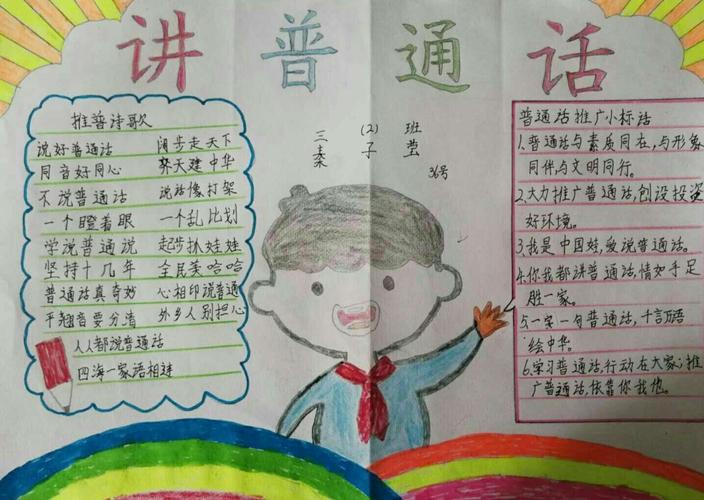 讲普通话
三(2)班
子莹
36号
推普诗歌
说好普通话 阔步走天下
同音好同心 齐天建中华
不说普通话 说话像打架
一个瞪着眼 一个乱比划
学说普通说 起步抓娃娃
坚持十几年 全民美哈哈
普通话真奇妙 心相印说普通
平翘音要分清 外乡人别担心
人人都说普通话
四海一家语相连
普通话推广小标话
1.普通话与素质同在,与形象
同伴,与文明同行。
2.大力推广普通话,创设投资
好环境。
3.我是中国娃,爱说普通话。
4.你我都讲普通话,情如手足
胜一家。
5.一字一句普通话,千言万语
绘中华。
6.学习普通话,行动在大家;推
广普通话,依靠你我他。